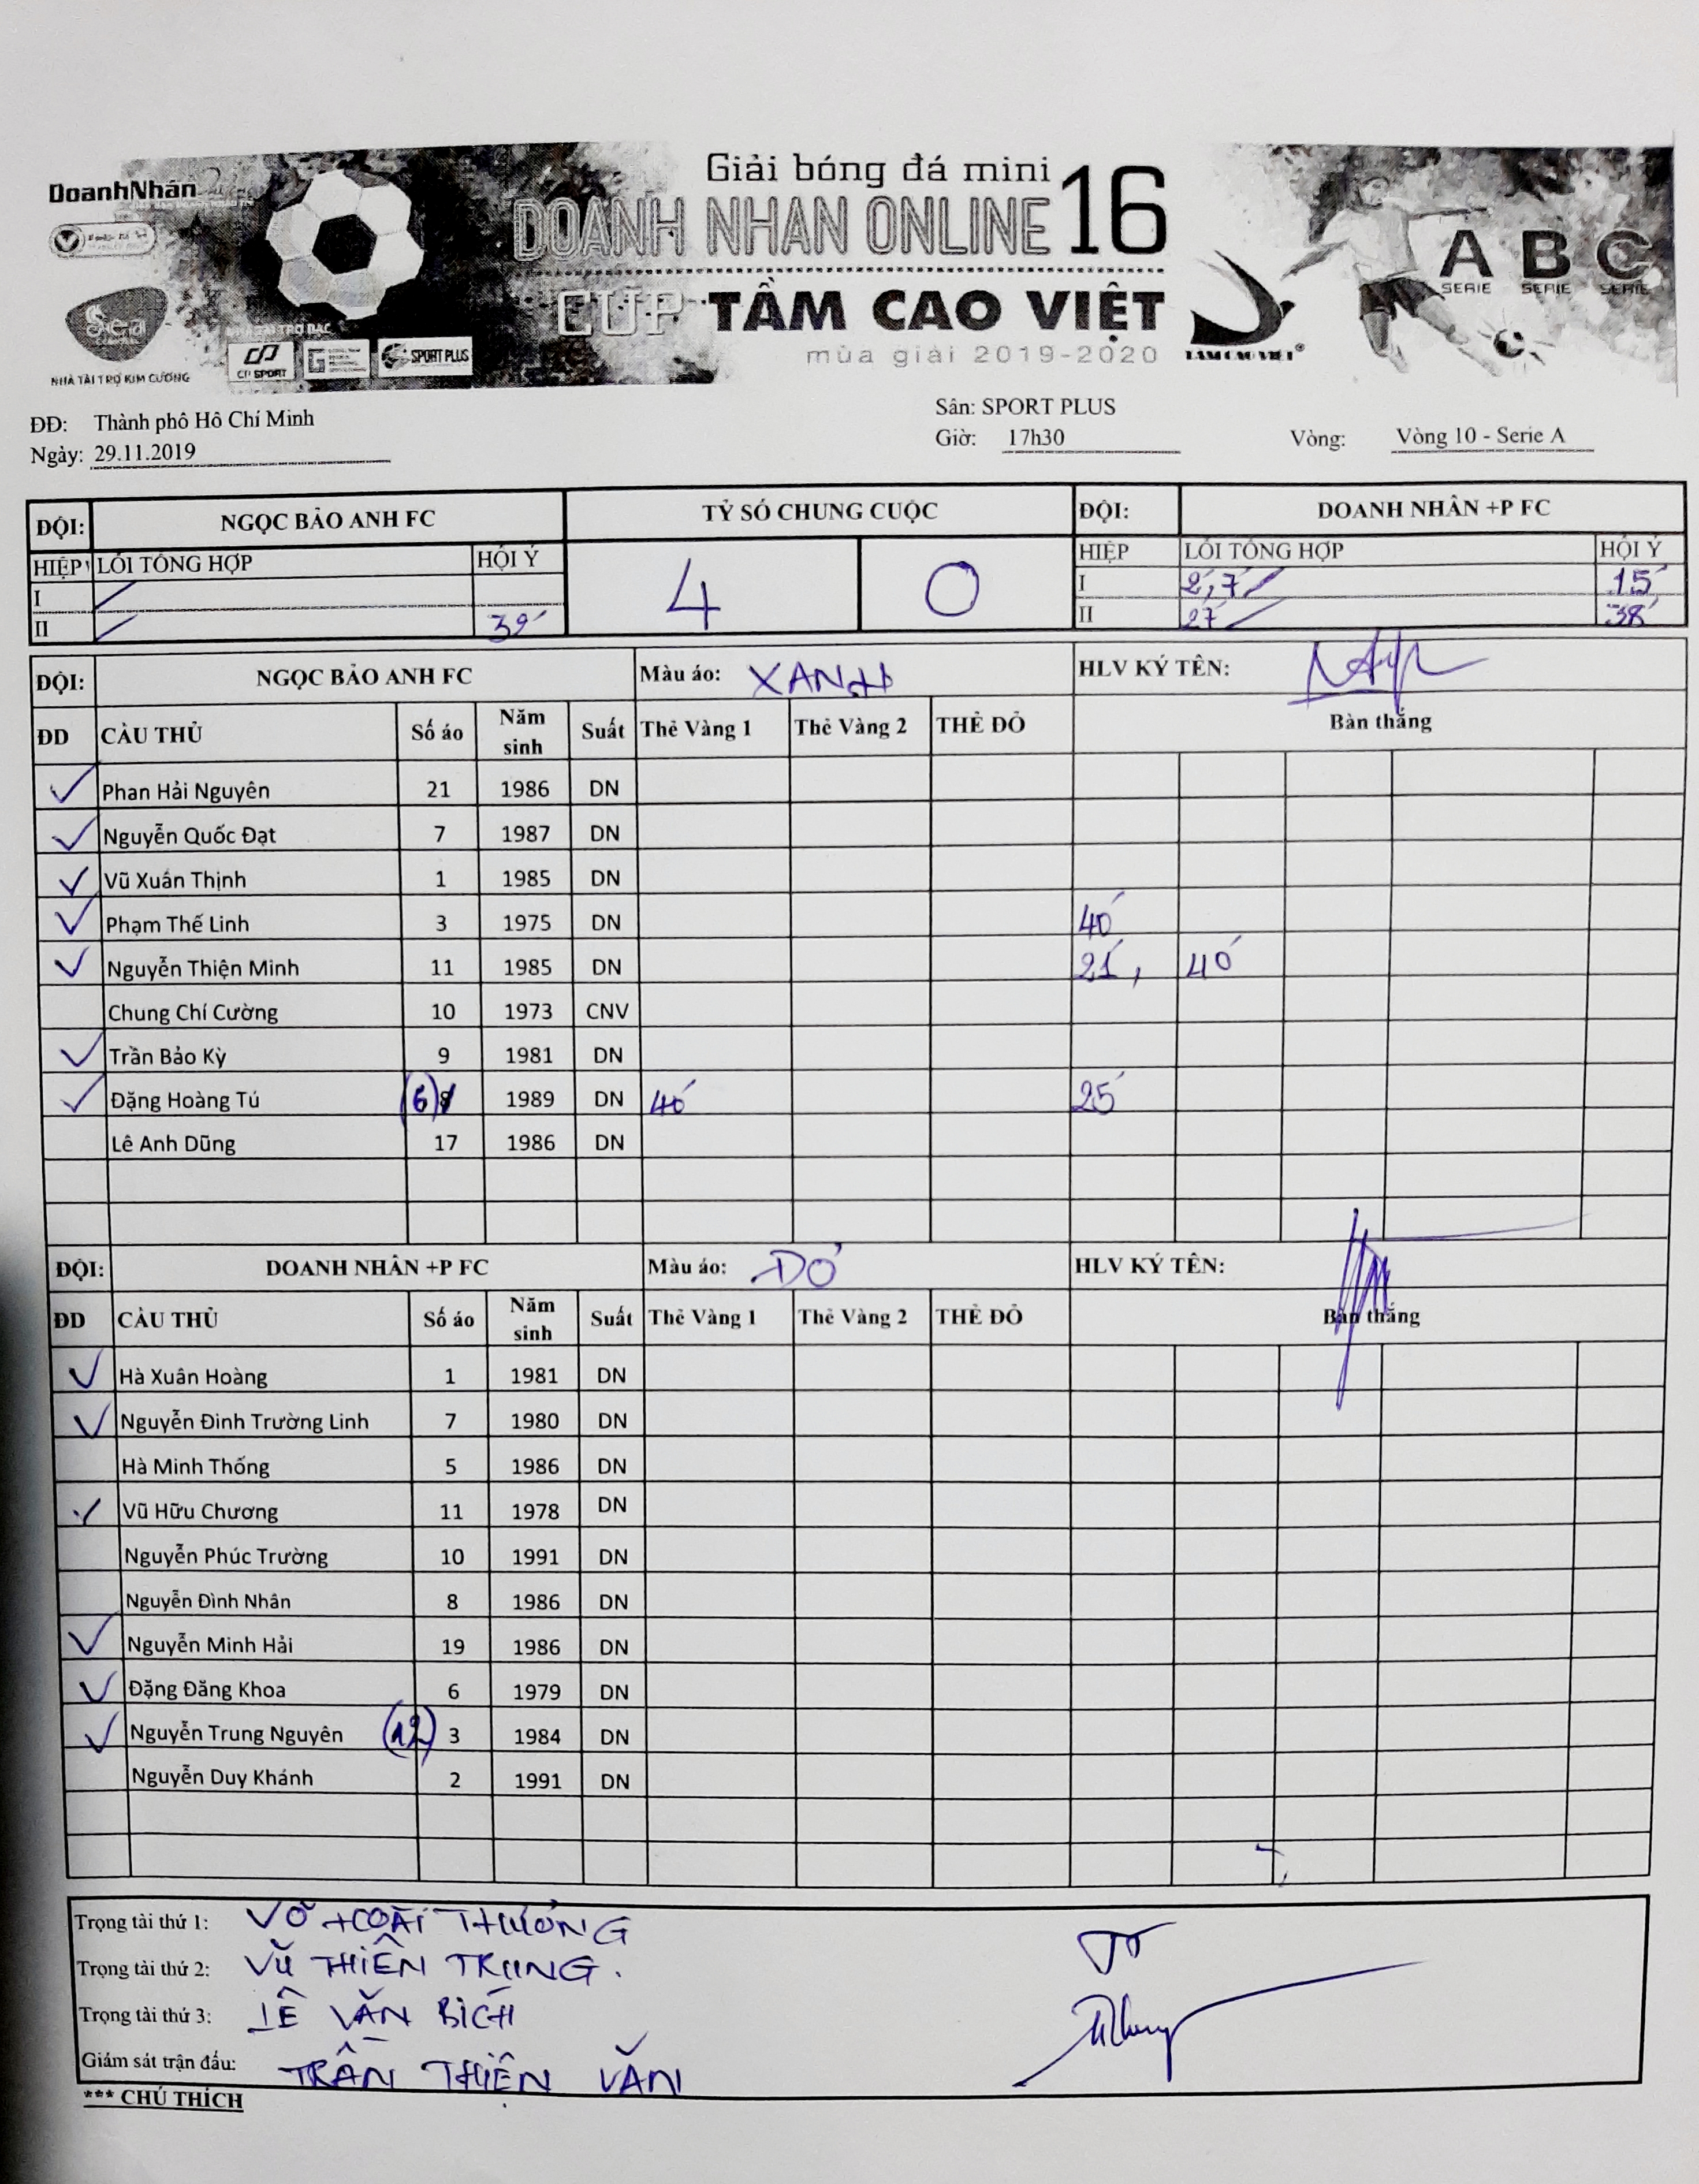 DoanhNhân
Giải bóng đá mini
DOANH NHAN ONLINE 16
CUP TẦM CAO VIỆT
mùa giải 2019-2020
A B C
SERIE SERIE SERIE
TAM CAO VIET
CP SPORT
SPORT PLUS
NHÀ TÀI TRỢ KIM CƯƠNG
ĐĐ: Thành phố Hồ Chí Minh Sân: SPORT PLUS
Ngày: 29.11.2019 Giờ: 17h30 Vòng: Vòng 10 - Serie A
ĐỘI: NGỌC BẢO ANH FC TỶ SỐ CHUNG CUỘC ĐỘI: DOANH NHÂN +P FC
HIỆP LỖI TỔNG HỢP HỘI Ý 4 0 HIỆP LỖI TỔNG HỢP HỘI Ý
I I 2, 7 15'
II 39' II 27 38'
ĐỘI: NGỌC BẢO ANH FC Màu áo: XANH HLV KÝ TÊN:
ĐD CẦU THỦ Số áo Năm sinh Suất Thẻ Vàng 1 Thẻ Vàng 2 THẺ ĐỎ Bàn thắng
Phan Hải Nguyên 21 1986 DN
Nguyễn Quốc Đạt 7 1987 DN
Vũ Xuân Thịnh 1 1985 DN
Phạm Thế Linh 3 1975 DN 40'
Nguyễn Thiện Minh 11 1985 DN 21', 40'
Chung Chí Cường 10 1973 CNV
Trần Bảo Kỳ 9 1981 DN
Đặng Hoàng Tú (6) 8 1989 DN 40' 25'
Lê Anh Dũng 17 1986 DN
ĐỘI: DOANH NHÂN +P FC Màu áo: ĐỎ HLV KÝ TÊN:
ĐD CẦU THỦ Số áo Năm sinh Suất Thẻ Vàng 1 Thẻ Vàng 2 THẺ ĐỎ Bàn thắng
Hà Xuân Hoàng 1 1981 DN
Nguyễn Đình Trường Linh 7 1980 DN
Hà Minh Thống 5 1986 DN
Vũ Hữu Chương 11 1978 DN
Nguyễn Phúc Trường 10 1991 DN
Nguyễn Đình Nhân 8 1986 DN
Nguyễn Minh Hải 19 1986 DN
Đặng Đăng Khoa 6 1979 DN
Nguyễn Trung Nguyên (12) 3 1984 DN
Nguyễn Duy Khánh 2 1991 DN
Trọng tài thứ 1: VÕ HOÀI THƯƠNG
Trọng tài thứ 2: VŨ THIÊN TRUNG.
Trọng tài thứ 3: LÊ VĂN BÍCH
Giám sát trận đấu: TRẦN THIỆN VĂN
*** CHÚ THÍCH